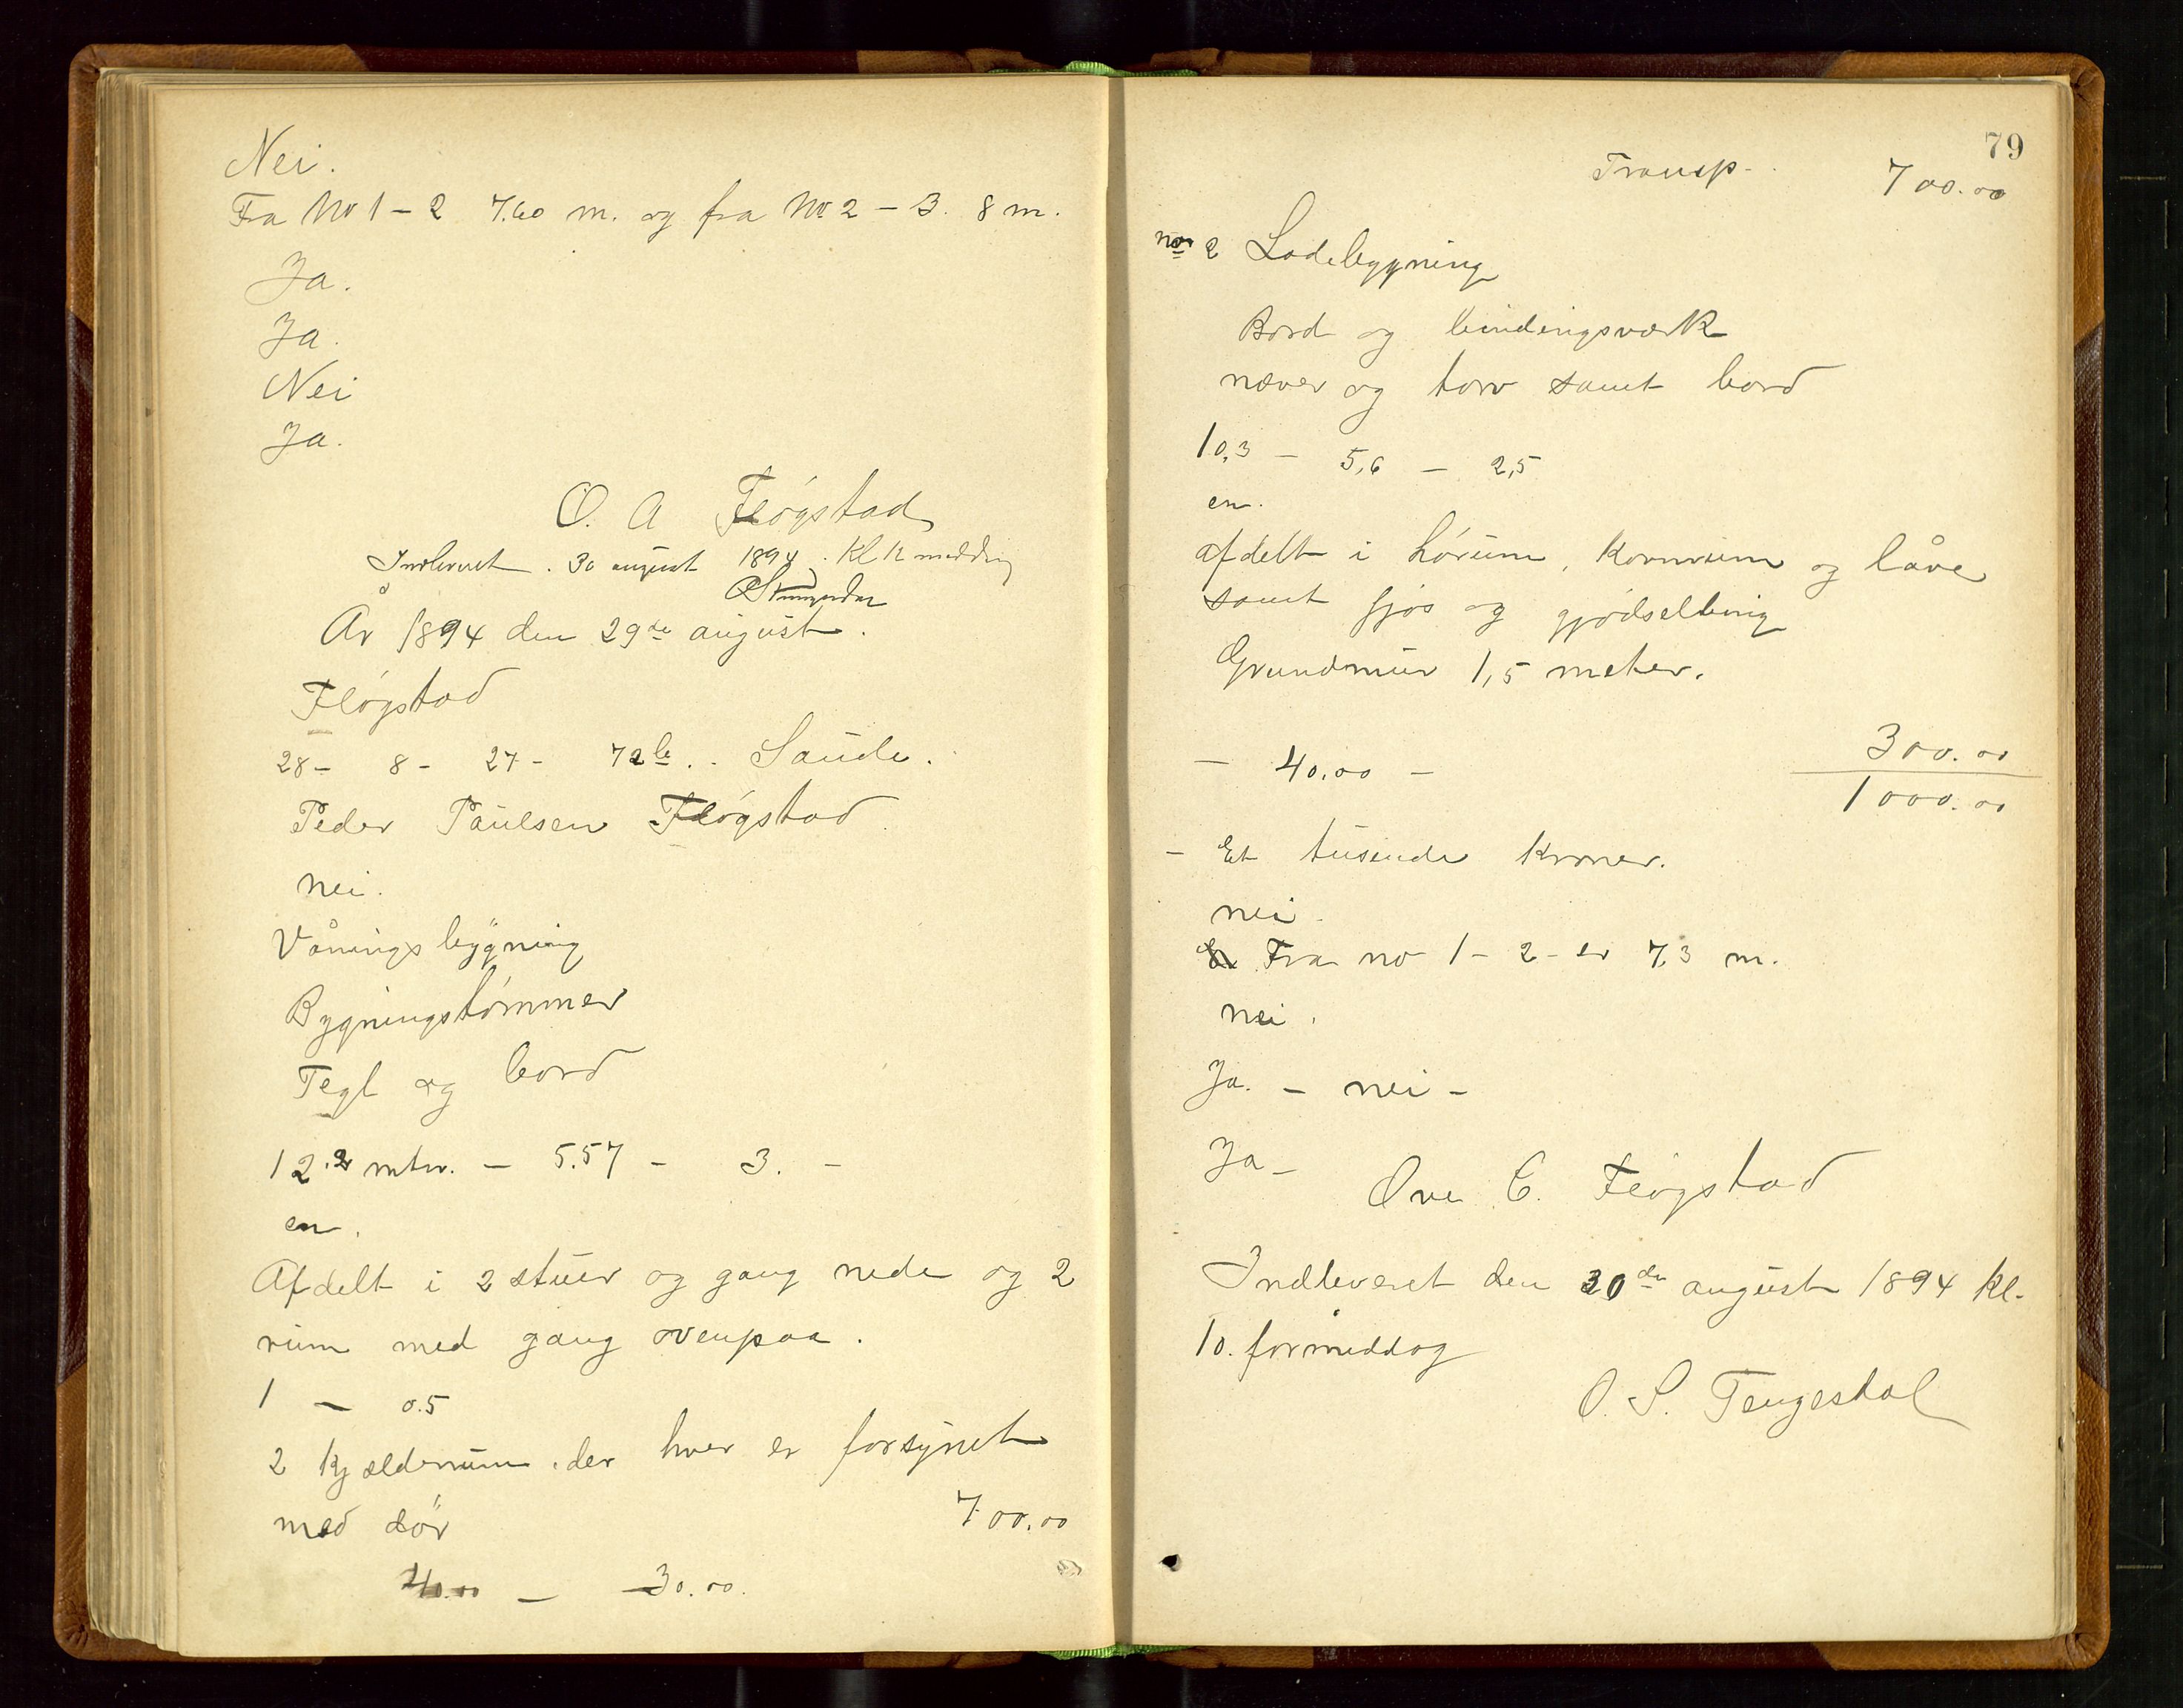 Nei.
Fra No 1 - 2 7.60 m. og fra No 2 - 3. 8 m.
Ja.
Ja.
Nei
Ja.
O. A Fløgstad
Indleveret. 30 august 1894. Kl 12 middag
År 1894 den 29de august.
Fløgstad
28 - 8 - 27 - 72b. . Saude.
Peder Paulsen Fløgstad
nei.
Våningsbygning
Bygningstømmer
Tegl og bord
12.2 mtr. - 5.57 - 3. -
en.
Afdelt i 2 stuer og gang nede og 2
rum med gang ovenpaa.
1 - 0.5
2 Kjælderrum. der hver er forsynet
med dør 700.00
40.00 - 30.00.
79
Transp. 700.00
no 2 Ladebygning
Bord og bindingsværk
næver og torv samt bord
10,3 - 5,6 - 2,5
en.
afdelt i hørum, Kornrum og låve
samt fjøs og gjødselbing
Grundmur 1,5 meter.
- 40.00 - 300.00
1000.00
- Et tusende kroner.
nei.
Fra no 1 - 2 - er 7,3 m.
nei.
Ja. - nei -
Ja -
Ove C. Fløgstad
Indleveret den 30de august 1894 Kl.
10. formiddag
O. S. Tengesdal